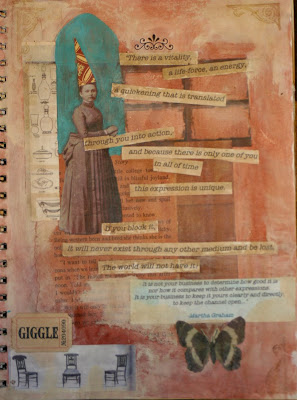 "There is a vitality,
a life-force, an energy,
a quickening that is translated
through you into action,
and because there is only one of you
in all of time
this expression is unique.
If you block it,
it will never exist through any other medium and be lost.
The world will not have it.
It is not your business to determine how good it is
nor how it compares with other expressions.
It is your business to keep it yours clearly and directly
to keep the channel open.
Martha Graham
GIGGLE